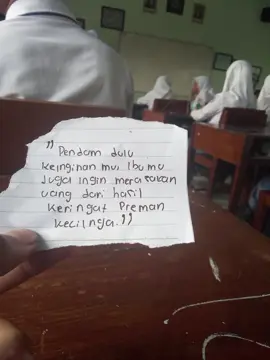 "Pendam dulu
keinginan mu, Ibumu
Juga ingin merasakan
uang dari hasil
keringat Preman
kecilnya."